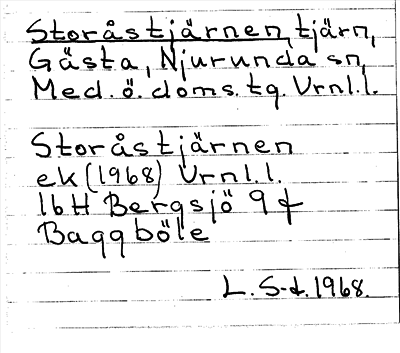 Storåstjärnen, tjärn,
Gästa, Njurunda sn,
Med. ö. doms. tg. Vrnl.l.
Storåstjärnen
ek (1968) Vrnl.l.
16H Bergsjö 9f
Baggböle
L. S-d. 1968.